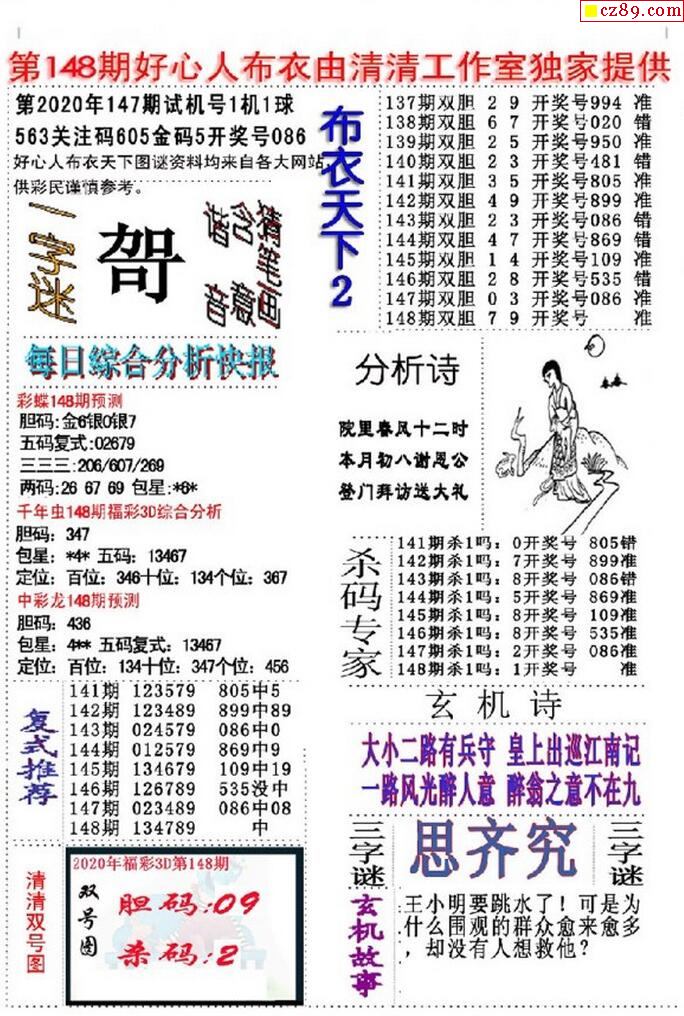 cz89.com
第148期好心人布衣由清清工作室独家提供
第2020年147期试机号1机1球
563关注码605金码5开奖号086
好心人布衣天下图谜资料均来自各大网站,
供彩民谨慎参考。
一字迷
哿
谐音
含意
猜笔画
每日综合分析快报
彩蝶148期预测
胆码:金6银0银7
五码复式:02679
三三三:206/607/269
两码:26 67 69 包星:*6*
千年虫148期福彩3D综合分析
胆码：347
包星：*4* 五码：13467
定位：百位：346十位：134个位：367
中彩龙148期预测
胆码：436
包星：4** 五码复式：13467
定位：百位：134十位：347个位：456
复式推荐
141期 123579 805中5
142期 123489 899中89
143期 024579 086中0
144期 012579 869中9
145期 134679 109中19
146期 126789 535没中
147期 023489 086中08
148期 134789 中
清清双号图
2020年福彩3D第148期
双号图
胆码:09
杀码:2
布衣天下2
137期双胆 2 9 开奖号994 准
138期双胆 6 7 开奖号020 错
139期双胆 2 5 开奖号950 准
140期双胆 2 3 开奖号481 错
141期双胆 3 5 开奖号805 准
142期双胆 4 9 开奖号899 准
143期双胆 2 3 开奖号086 错
144期双胆 4 7 开奖号869 错
145期双胆 1 4 开奖号109 准
146期双胆 2 8 开奖号535 错
147期双胆 0 3 开奖号086 准
148期双胆 7 9 开奖号 准
分析诗
院里春风十二时
本月初八谢恩公
登门拜访送大礼
杀码专家
141期杀1吗：0开奖号 805错
142期杀1吗：7开奖号 899准
143期杀1吗：8开奖号 086错
144期杀1吗：5开奖号 869准
145期杀1吗：8开奖号 109准
146期杀1吗：8开奖号 535准
147期杀1吗：2开奖号 086准
148期杀1吗：1开奖号 准
玄机诗
大小二路有兵守 皇上出巡江南记
一路风光醉人意 醉翁之意不在九
三字谜
思齐究
三字谜
玄机故事
王小明要跳水了！可是为
什么围观的群众愈来愈多
，却没有人想救他？